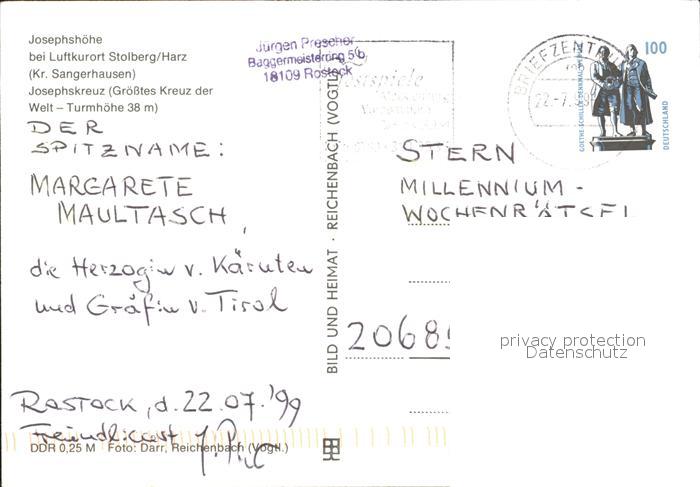 Josephshöhe
bei Luftkurort Stolberg/Harz
(Kr. Sangerhausen)
Josephskreuz (Größtes Kreuz der
Welt – Turmhöhe 38 m)
DER
SPITZNAME:
MARGARETE
MAULTASCH,
die Herzogin v. Kärnten
und Gräfin v. Tirol
Rostock, d. 22.07.'99
Freundlichst
DDR 0,25 M Foto: Darr, Reichenbach (Vogtl.)
BILD UND HEIMAT · REICHENBACH (VOGTL
Jürgen Prescher
Baggermeisterring 5b
18109 Rostock
estspiele
BRIEFZENTRUM
22.-7.99
100
GOETHE-SCHILLER-DENKMAL
DEUTSCHLAND
STERN
MILLENNIUM-
WOCHENRÄTSEL
2068
privacy protection
Datenschutz